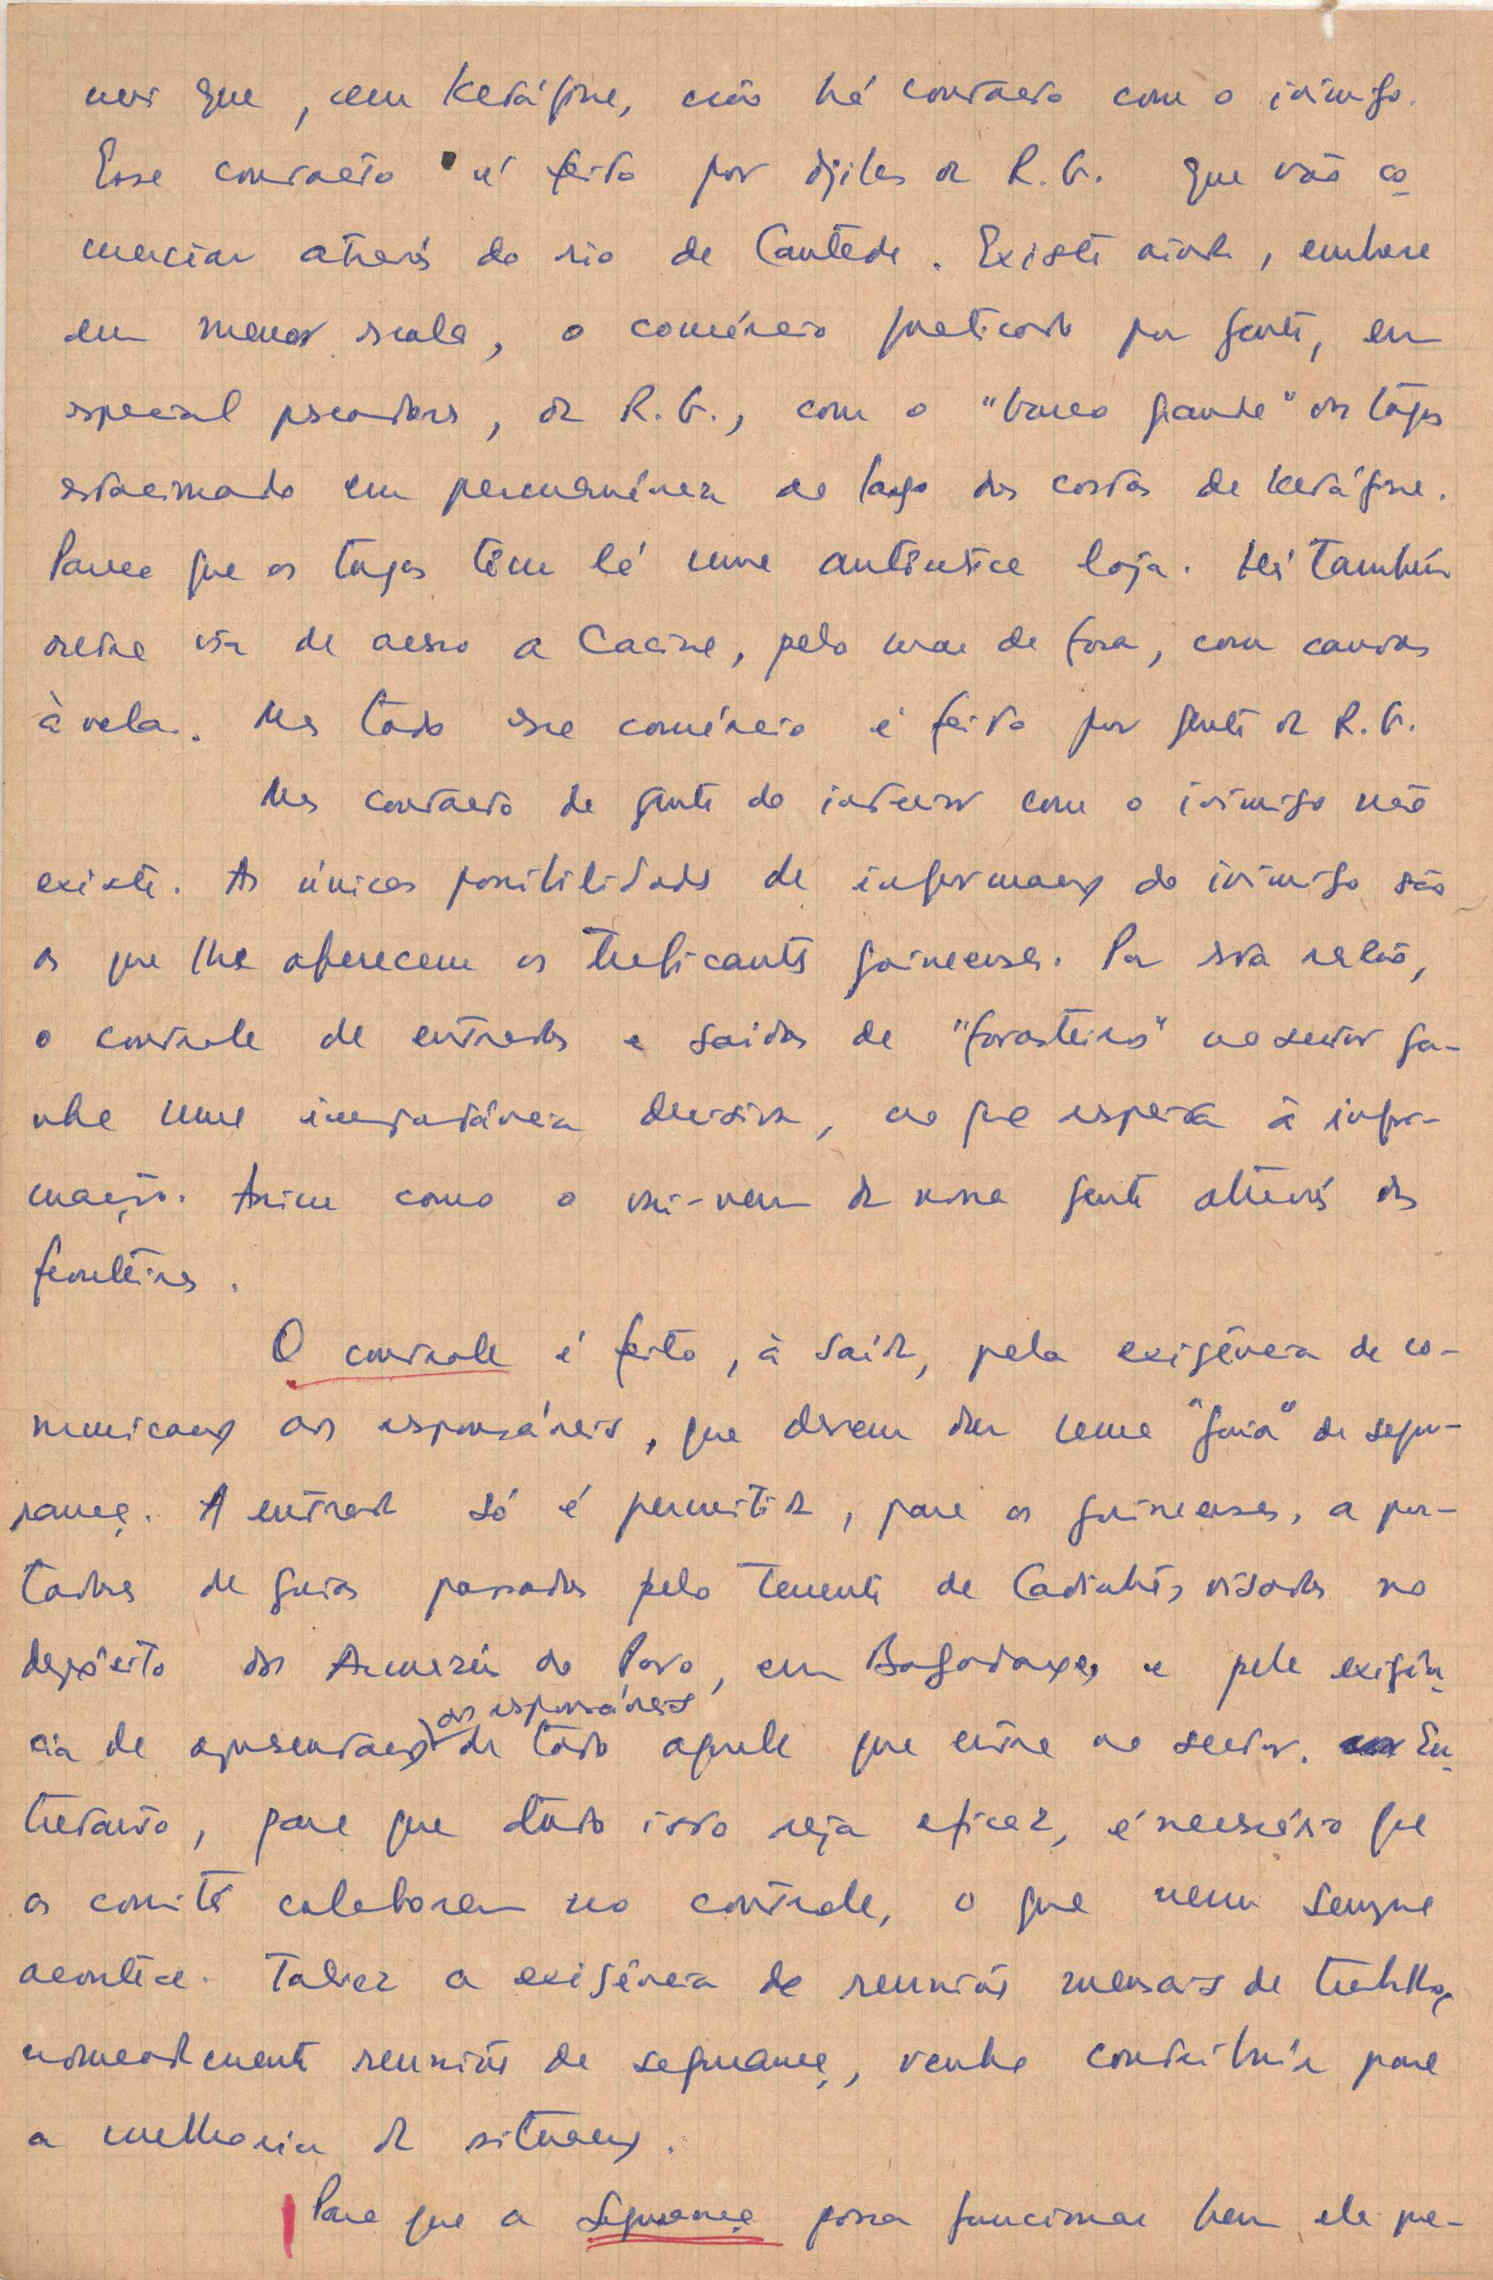 mos que, em Ketáfine, não há contacto com o inimigo.
Esse contacto é feito por djilas da R.G. que vão co-
merciar através do rio de Cantede. Existe ainda, embora
em menor escala, o comércio praticado por gente, em
especial pescadores, da R.G., com o "barco grande" dos tugas
estacionado em permanência ao largo das costas de Ketáfine.
Parece que os tugas têm lá uma autêntica loja. Há também
outra via de acesso a Cacine, pelo mar de fora, com canoas
à vela. Mas todo esse comércio é feito por gente da R.G.
Mas contacto de gente do interior com o inimigo não
existe. As únicas possibilidades de informação do inimigo são
as que lhe oferecem os traficantes guineenses. Por esta razão,
o controle de entradas e saídas de "forasteiros" no sector ga-
nha uma importância decisiva, no que respeita à infor-
mação. Assim como o vai-vem da nossa gente através das
fronteiras.
O controle é feito, à saída, pela exigência de co-
municação aos responsáveis, que devem dar uma "guia" de segu-
rança. A entrada só é permitida, para os guineenses, a por-
tadores de guias passadas pelo tenente de Cadinhé, visadas no
depósito dos Armazéns do Povo, em Bagadaxe, e pela exigên-
cia de apresentação aos responsáveis de todo aquele que entre no sector. En-
tretanto, para que tudo isso seja eficaz, é necessário que
os comités colaborem no controle, o que nem sempre
acontece. Talvez a exigência de reuniões mensais de trabalho,
nomeadamente reuniões de segurança, venha contribuir para
a melhoria da situação.
Para que a Segurança possa funcionar bem ela pre-